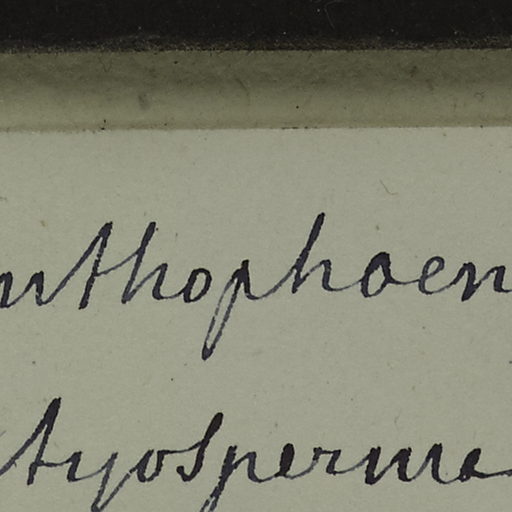 nthophoen
tyosperma